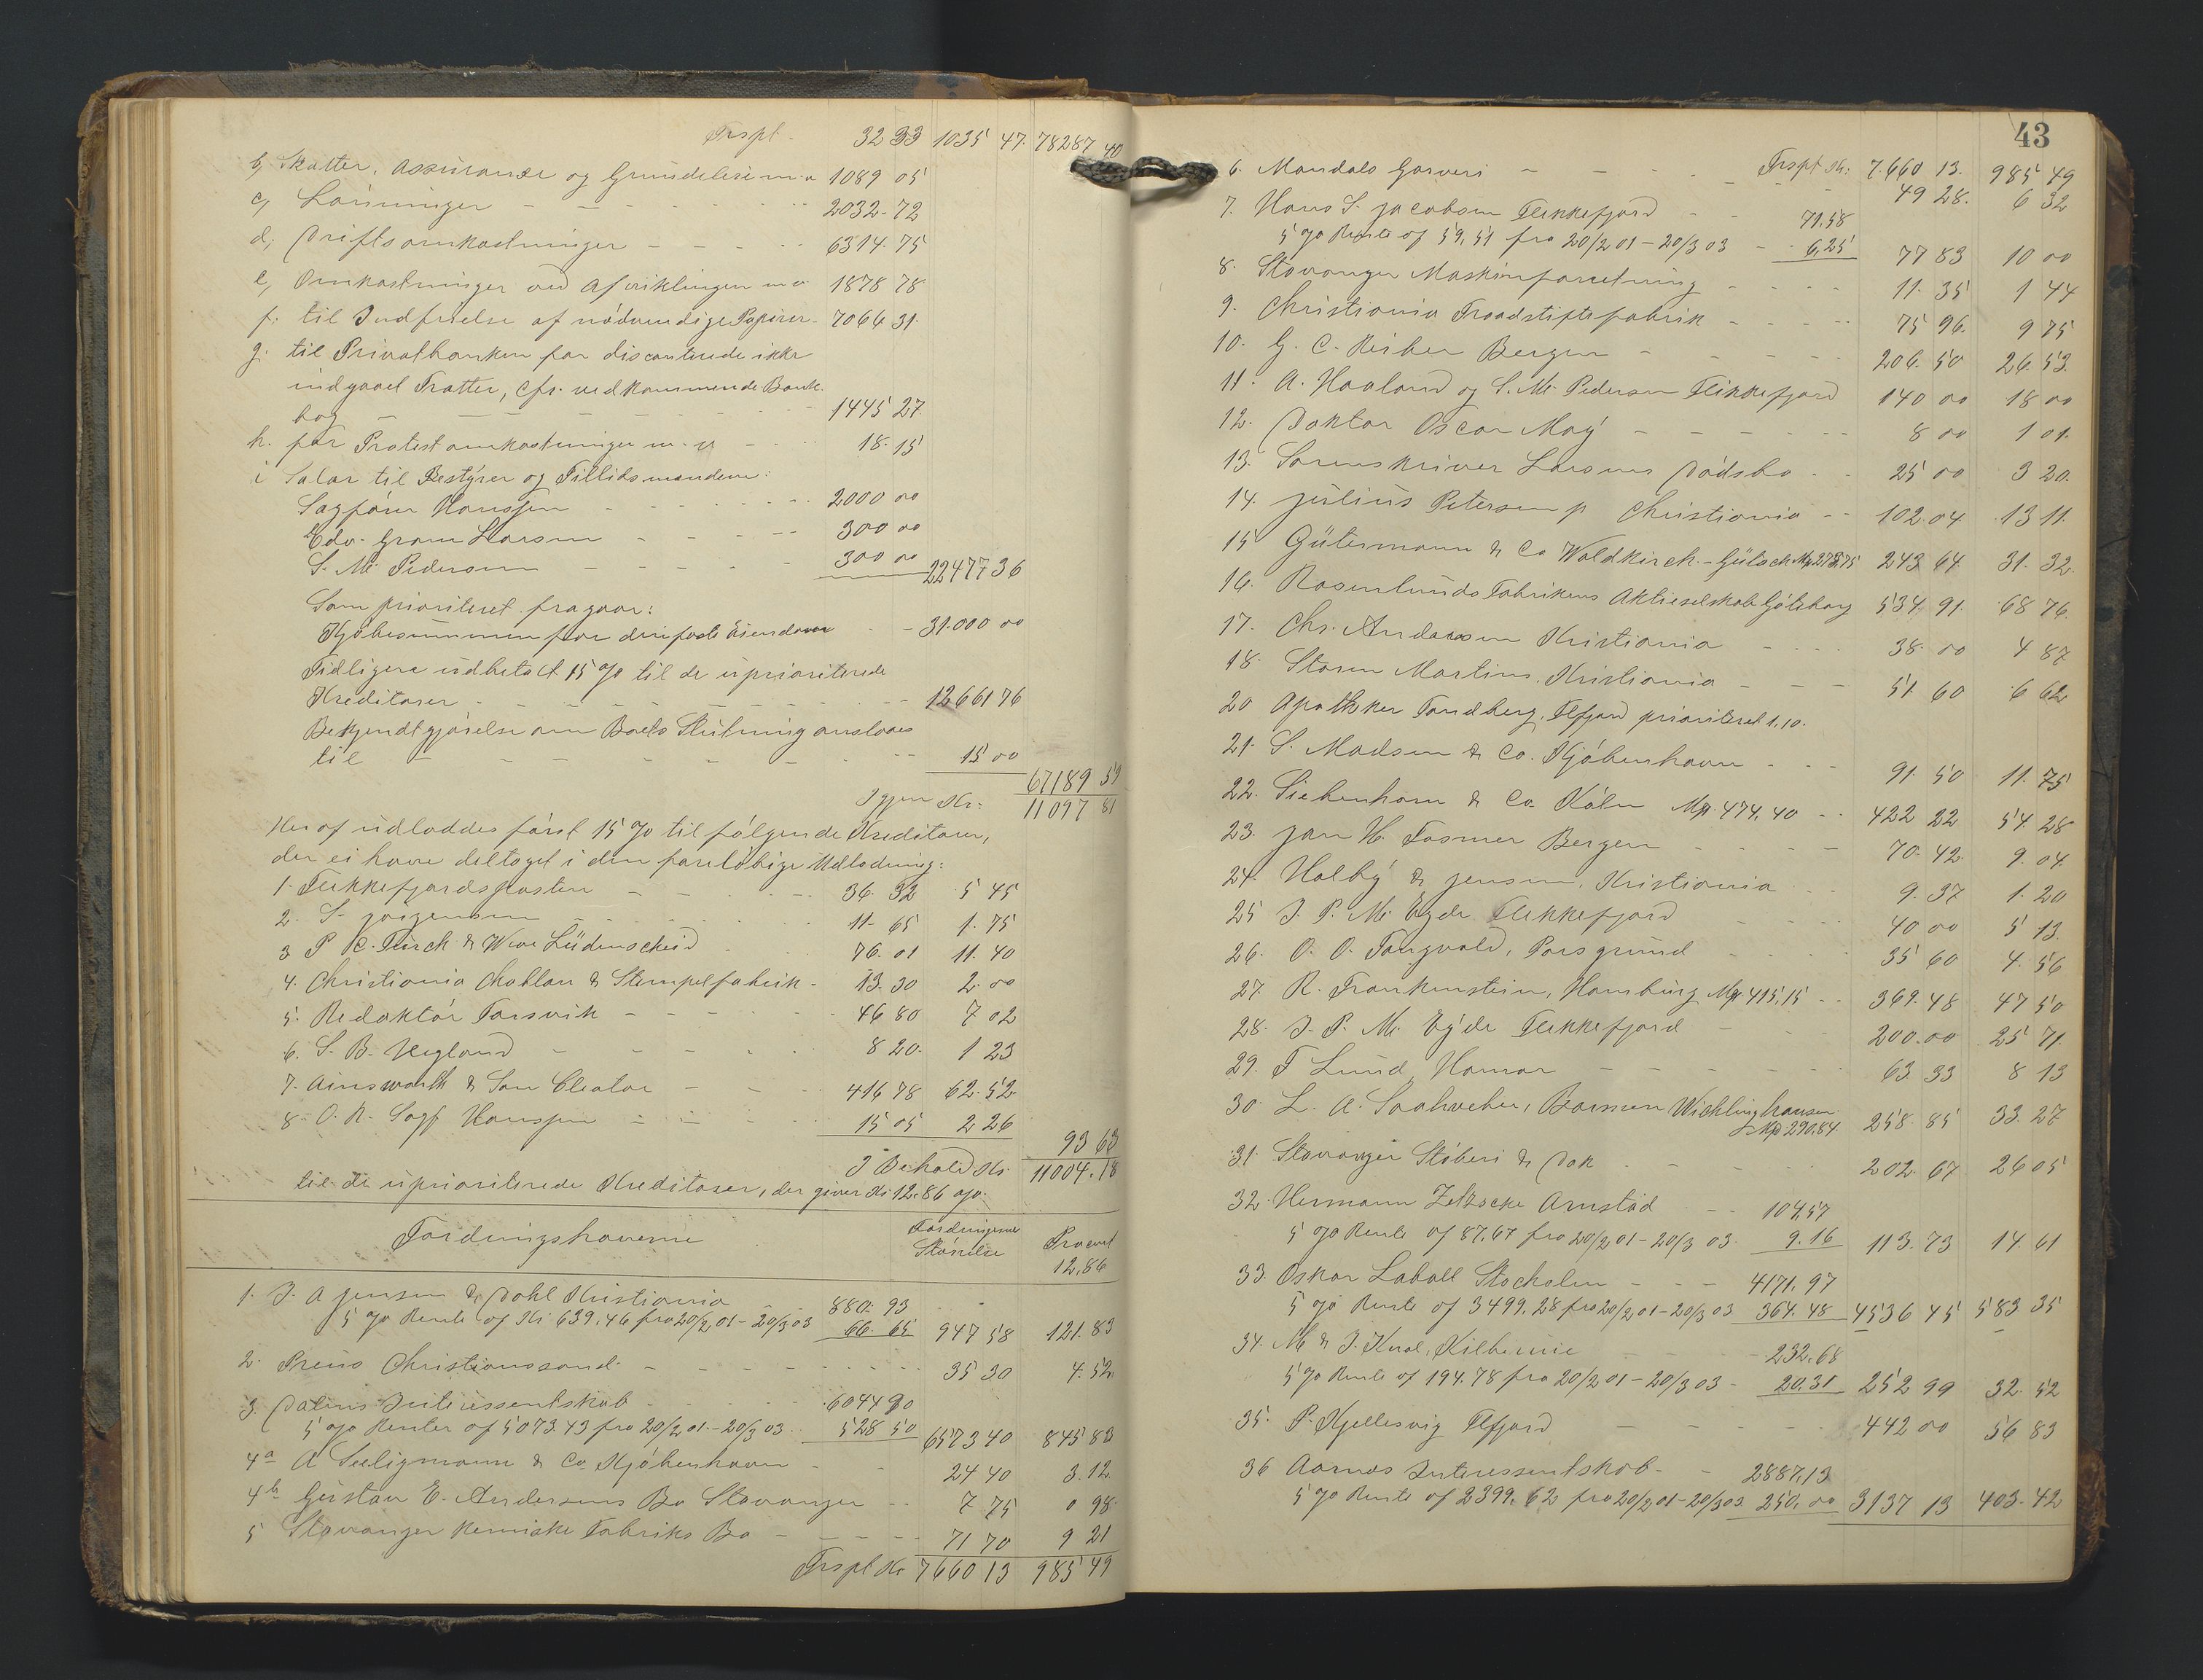 Trspt. 32 33 1035 47. 78287 40
b, Skatter, Assurance og Grundleie m. v 1089 05
c, Lønninger 2032. 72
d, Driftsomkostninger 6314. 75
e, Omkostninger ved Afviklingen m. v. 1878 78
f: til Indfrielse af nødvendige Papirer 7066 31.
g: til Privatbanken for discenterede ikke
indgaaet Tratter, cfr. vedkommende Bank-
bog 1445 27.
h. for Protestomkostninger m. v 18. 15
i Salar til Bestyrer og Tillidsmændene:
Sagfører Hanssen 2000 00
Edv. Gram Larsen 300 00
S. M. Pedersen 300 00 22477 36
Som prioriteret fragaar:
Kjøbesummen for den faste Eiendom 31.000 00
Tidligere udbetalt 15 % til de uprioriterede
Kreditorer 12661 76
Bekjendtgjørelse om Boets Slutning ansloaes
til 15 00
67189 59
Igjen Kr: 11097 81
Heraf udloddes først 15 % til følgende Kreditorer,
der ei have deltaget i den foreløbige Udlodning:
1. Flekkefjordsposten 36. 32 5 45
2. S. Jørgensen 11. 65 1. 75
3 P. C. Turck & Wwe Lüdenscheid 76. 01 11. 40
4. Christiania Chablon & Stempelfabrik 13. 30 2. 00
5. Redaktør Forsvik 46 80 7 02
6. S. B. Uegland 8 20. 1 23
7. Ainsworth & Son Cleator 416 78 62. 52
8. O. R. Sagf Hanssen 15 05 2 26
93 63
I Behold Kr. 11004. 18
til de uprioriterede Kreditorer, der giver Kr 12,86 o/o.
Fordringshaverne Fordringernes Størrelse Procent 12,86
1. J. A Jensen & Dahl Kristiania 880. 93
5 % Rente of Kr 639,46 fra 20/2 01 - 20/3 03 66. 65 947 58 121. 83
2. Preus Christianssand. 35 30 4. 52
3. Dalens Interessentskab 6044 90
5 % Renter of 5073.43 fra 20/2 01 - 20/3 03 528 50 6573 40 845 83
4a A Seeligmann & Co. Kjøbenhavn 24 40 3. 12
4b Gustav E. Andersens Bo Stavanger 7 75 0 98
5 Stavanger kemiske Fabriks Bo 71 70 9 21
Trspt Kr 7660 13 985 49
43
Trspt Kr: 7.660 13. 985 49
6. Mandals Garveri 49 28. 6 32
7. Hans S. Jacobsen Flekkefjord 71,58
5 % Rente of 59,51 fra 20/2 01 - 20/3 03 6,25 77 83 10 00
8. Stavanger Maskinforretning 11. 35 1 44
9. Christiania Traadstiftsfabrik 75 96. 9 75
10. G. C. Reiber Bergen 206. 50 26. 53.
11. A. Haaland og S. M. Pedersen Flekkefjord 140 00 18 00
12. Doktor Oscar May 8 00 1 01.
13. Sorenskriver Larsens Dødsbo 25 00 3 20.
14. Julius Petersen jr Christiania 102. 04 13 11.
15 Gütermann & Co Waldkirch - Gütsch Mk 273,75 243 64 31. 32.
16. Rosenlunds Fabrikens Aktieselskab Göteborg 534, 91. 68 76.
17. Chr. Andersen Kristiania 38. 00 4 87
18. Storm Martins. Kristiania 51. 60 6 62
20 Apotheker Tandberg, Flfjord prioriteret 1,10.
21. S. Madsen & Co. Kjøbenhavn 91. 50 11. 75
22. Siebenhorn & Co Köln Mk. 474,40 422 22 54. 28
23. Jan H. Fasmer Bergen 70. 42. 9. 04.
24. Halby & Jensen, Kristiania 9. 37 1. 20
25 J. P. M. Eyde Flekkefjord 40 00 5 13
26. O. O. Tangvald, Porsgrund 35 60 4. 56
27. R. Frankenstein, Hamburg Mk 415,15 369. 48 47 50
28. J. P. M. Eyde Flekkefjord 200. 00 25 71.
29. F Lund, Hamar 63 33 8 13
30. L. A. Saahveber, Barmen Wichlinghausen
Mk 290,84. 258. 85 33. 27
31. Stavanger Støberi & Dok 202. 67 26 05
32. Hermann Zetzscke Arnstad 104,57
5 % Rente of 87,67 fra 20/2 01 - 20/3 03. 9. 16 113. 73 14. 61
33. Oskar Laball Stocholm 4171. 97
5 % Rente of 3499. 28 fra 20/2 01 - 20/3 03 364. 48 4536 45 583 35
34. M & J. Knol, Kilbirnie 232. 68
5 % Rente of 194.78 fra 20/2 01 - 20/3 03 20. 31 252 99 32. 52
35. P. Kjellesvig Flfjord 442 00 56 83
36 Aarnes Interessentskab. 2887,13
5 % Rente of 2399. 62 fra 20/2 01 - 20/3 03 250, 00 3137 13 403. 42